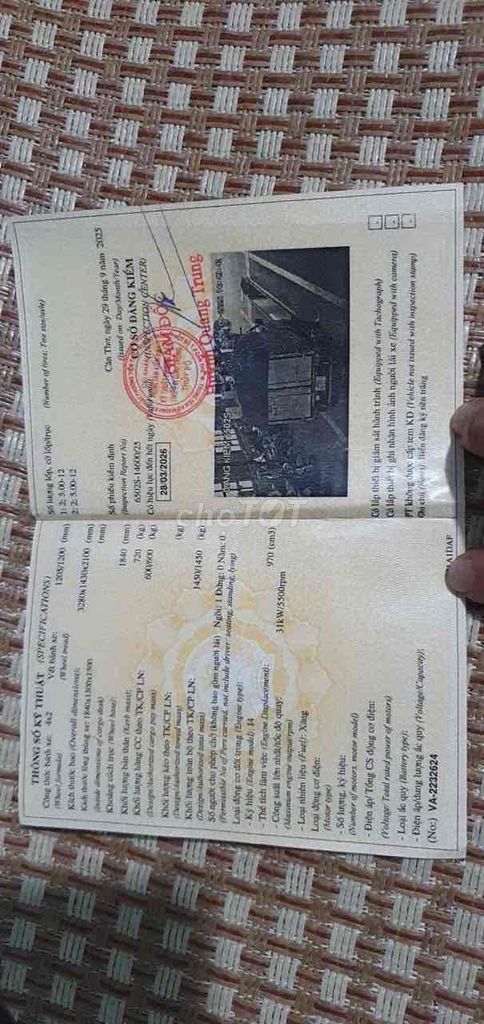 THÔNG SỐ KỸ THUẬT (SPECIFICATIONS)
Công thức bánh xe: 4x2 Vết bánh xe: 1205/1200 (mm)
(Wheel formula) (Wheel tread)
Kích thước bao (Overall dimensions): 3280x1430x2100 (mm)
Kích thước lòng thùng xe: 1840x1300x1300
(Inside dimensions of cargo deck)
Khoảng cách trục (Wheel base): 1840 (mm)
Khối lượng bản thân (Kerb mass): 720 (kg)
Khối lượng hàng CC theo TK/CP LN: 600/600 (kg)
(Design/Authorized cargo pay mass)
Khối lượng kéo theo TK/CP LN: (kg)
(Design/Authorized towed mass)
Khối lượng toàn bộ theo TK/CP LN: 1450/1450 (kg)
(Design/Authorized total mass)
Số người cho phép chở (không bao gồm người lái) Ngồi: 1 Đứng: 0 Nằm: 0
(Permissible No of Pers carried, not include driver: seating, standing, lying)
Loại động cơ đốt trong (Engine type):
- Ký hiệu (Engine model): I4
- Thể tích làm việc (Engine Displacement): 970 (cm3)
- Công suất lớn nhất/tốc độ quay: 31kW/5500rpm
(Maximum engine output/rpm)
- Loại nhiên liệu (Fuel): Xăng
Loại động cơ điện:
(Motor type)
- Số lượng, ký hiệu:
(Number of motors; motor model)
- Điện áp/ Tổng CS động cơ điện:
(Voltage/ Total rated power of motors)
- Loại ắc quy (Battery type):
- Điện áp/dung lượng ắc quy (Voltage/Capacity):
(No.) VA-2232624
Số lượng lốp, cỡ lốp/trục (Number of tires; Tire size/axle)
1: 2; 5.00-12
2: 2; 5.00-12
Số phiếu kiểm định
(Inspection Report No)
6502S-14600/25
Có hiệu lực đến hết ngày
28/03/2026
Cần Thơ, ngày 29 tháng 9 năm 2025
(Issued on: Day/Month/Year)
CƠ SỞ ĐĂNG KIỂM
(INSPECTION CENTER)
GIÁM ĐỐC
Quang Trung
Có lắp thiết bị giám sát hành trình (Equipped with Tachograph)
Có lắp thiết bị ghi nhận hình ảnh người lái xe (Equipped with camera)
PT không được cấp tem KĐ (Vehicle not issued with inspection stamp)
Ghi chú (Notes): Biển đăng ký nền trắng
choTOT